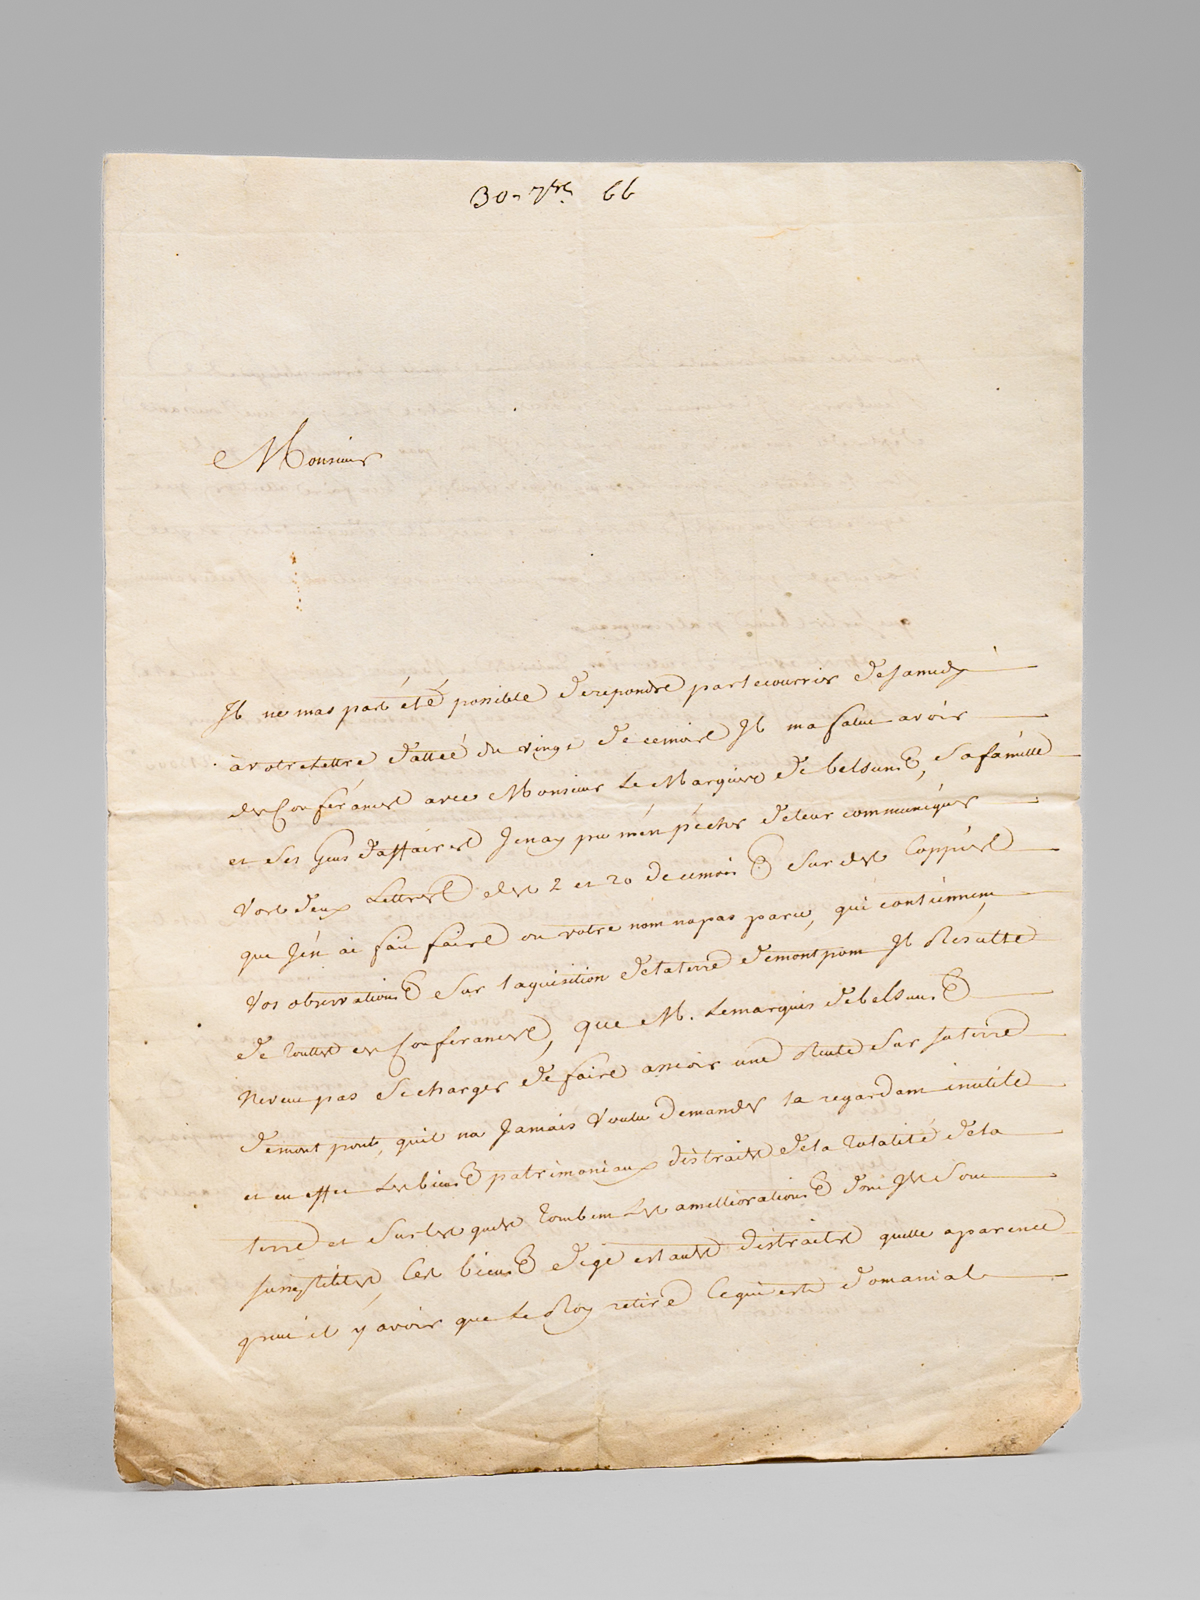 30. 7bre. 66
Monsieur
Il ne mas pas été possible de repondre par le courrier de samedy
à votre lettre dattée du vingt de ce mois Il ma falut avoir
des Conferances avec Monsieur Le Marquis de belsunce, sa famille
et Ses Gens d'affaires Jenay pu m'en pêcher de leur communiquer
Vos deux Lettres des 2 et 20 de ce mois Sur des Coppies
que J'en ai fait faire ou votre nom na pas paru, qui contiennent
Vos observations Sur laquisition de la terre de montpont Il Resulte
de touttes ces Conferances, que M. Le marquis de belsunce
ne veut pas Se charger de faire asseoir une Rente Sur la terre
de mont pont, quil na Jamais Voulu demander la regardant inutile
et en effet Les biens patrimoniaux distraits de la totalité de la
terre et Sur les quels tombent Les ameliorations dont Ils Sont
Ces biens distraits quelle aparence
y avoir que Le Roy retire Ce qui est domanial